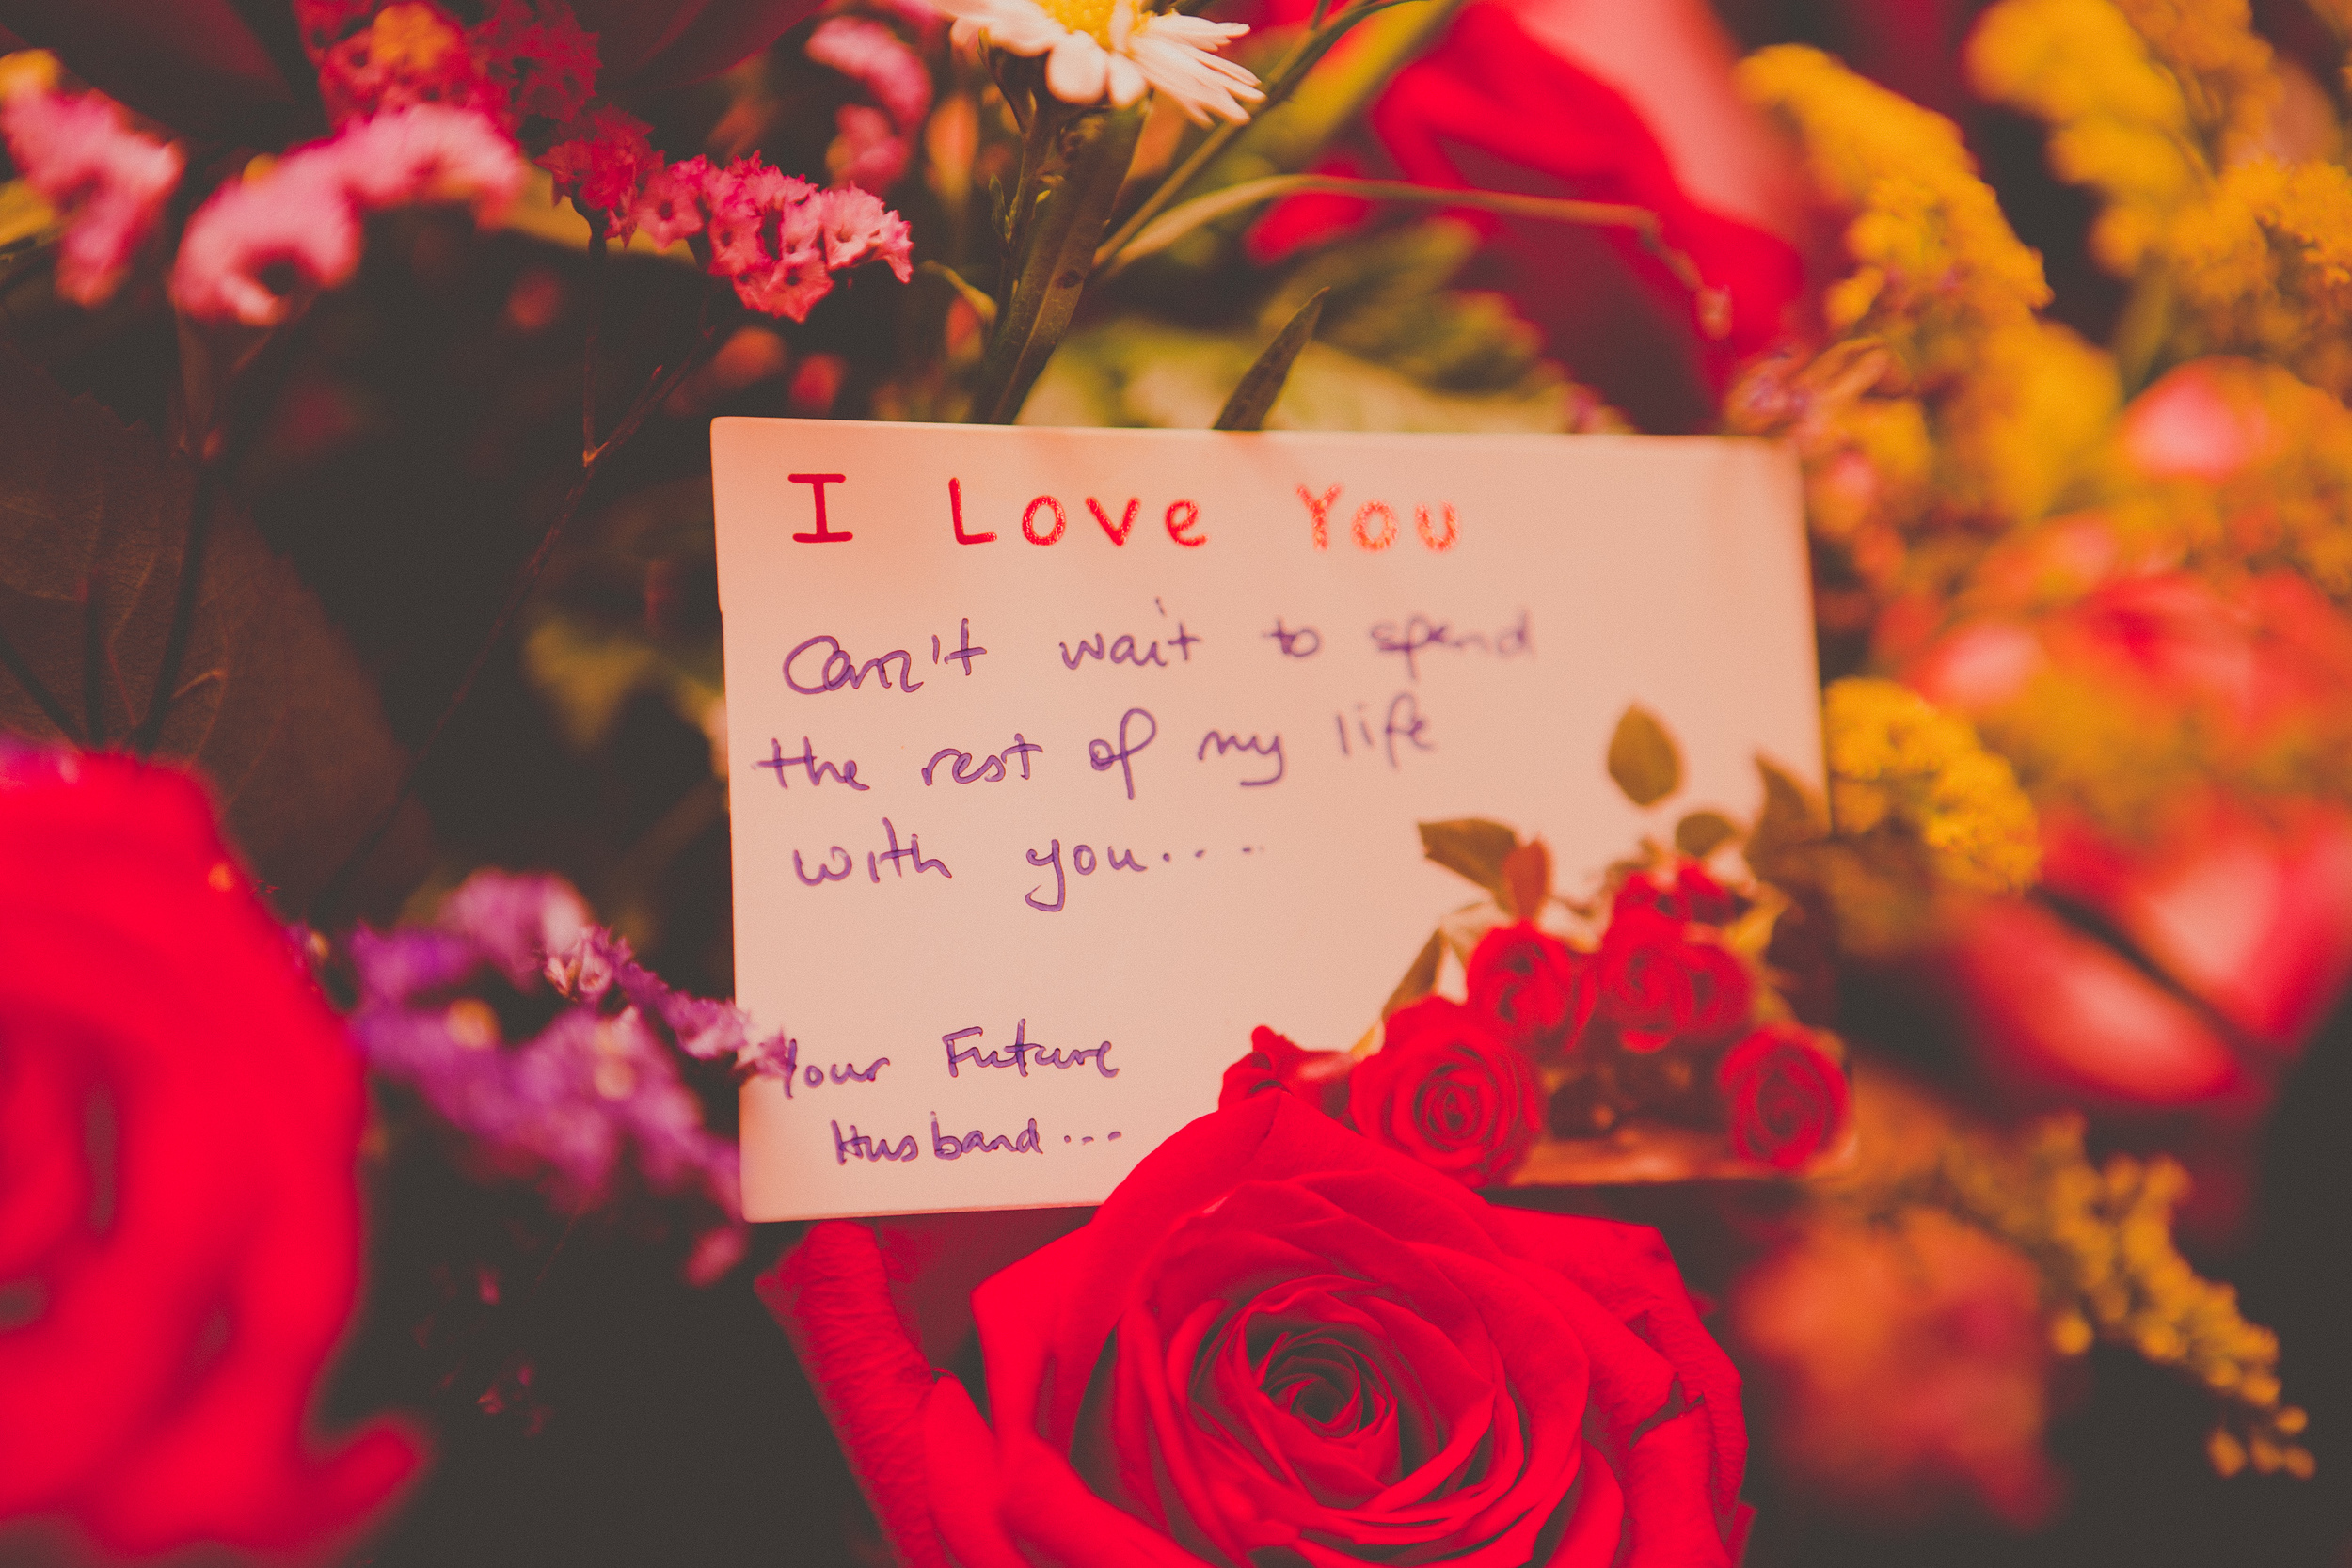 I Love You
Can't wait to spend
the rest of my life
with you....
Your Future
Husband...